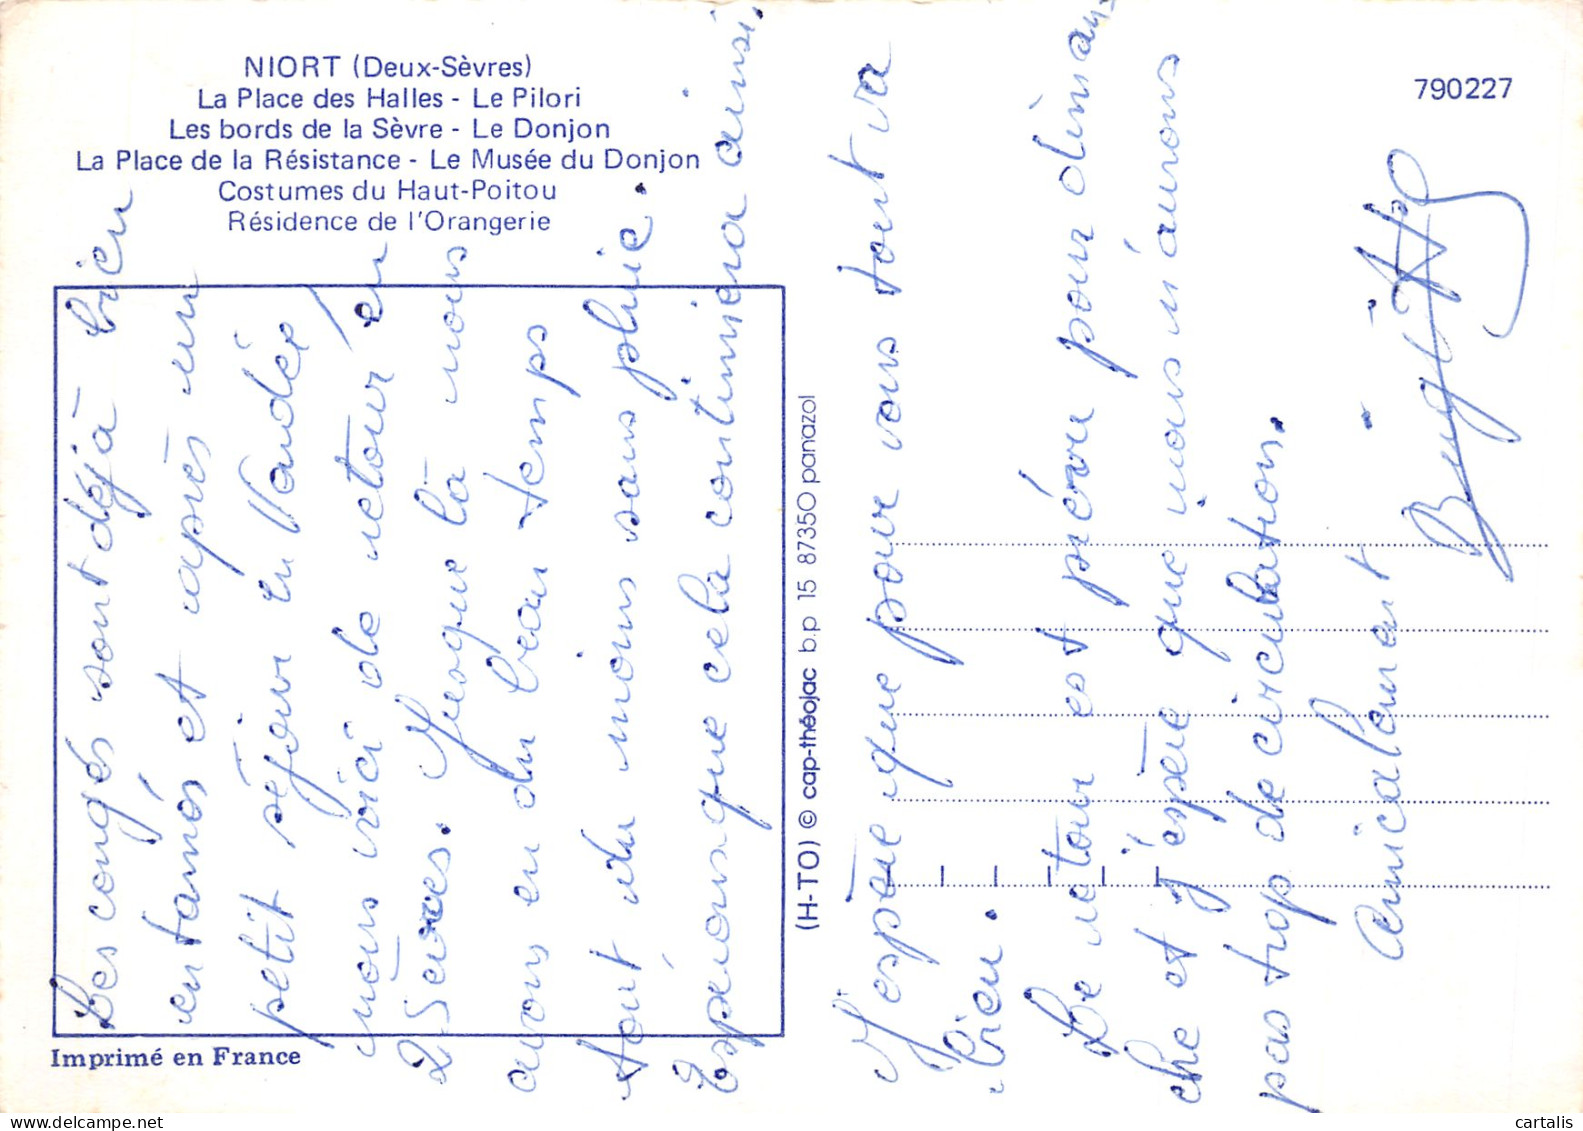 NIORT (Deux-Sèvres)
La Place des Halles - Le Pilori
Les bords de la Sèvre - Le Donjon
La Place de la Résistance - Le Musée du Donjon
Costumes du Haut-Poitou
Résidence de l'Orangerie
790227
Les congés sont déjà bien
entamés et après un
petit séjour en Vendée
nous voici de retour en
2 Sèvres. Jusque là nous
avons eu du beau temps
tout du moins sans pluie.
Espérons que cela continuera ainsi.
(H-TO) © cap-théojac b.p 15 87350 panazol
J'espère que pour vous tout va
bien.
Le retour est prévu pour diman-
che et j'espère que nous n'aurons
pas trop de circulation.
Amicalement
Imprimé en France
cartalis